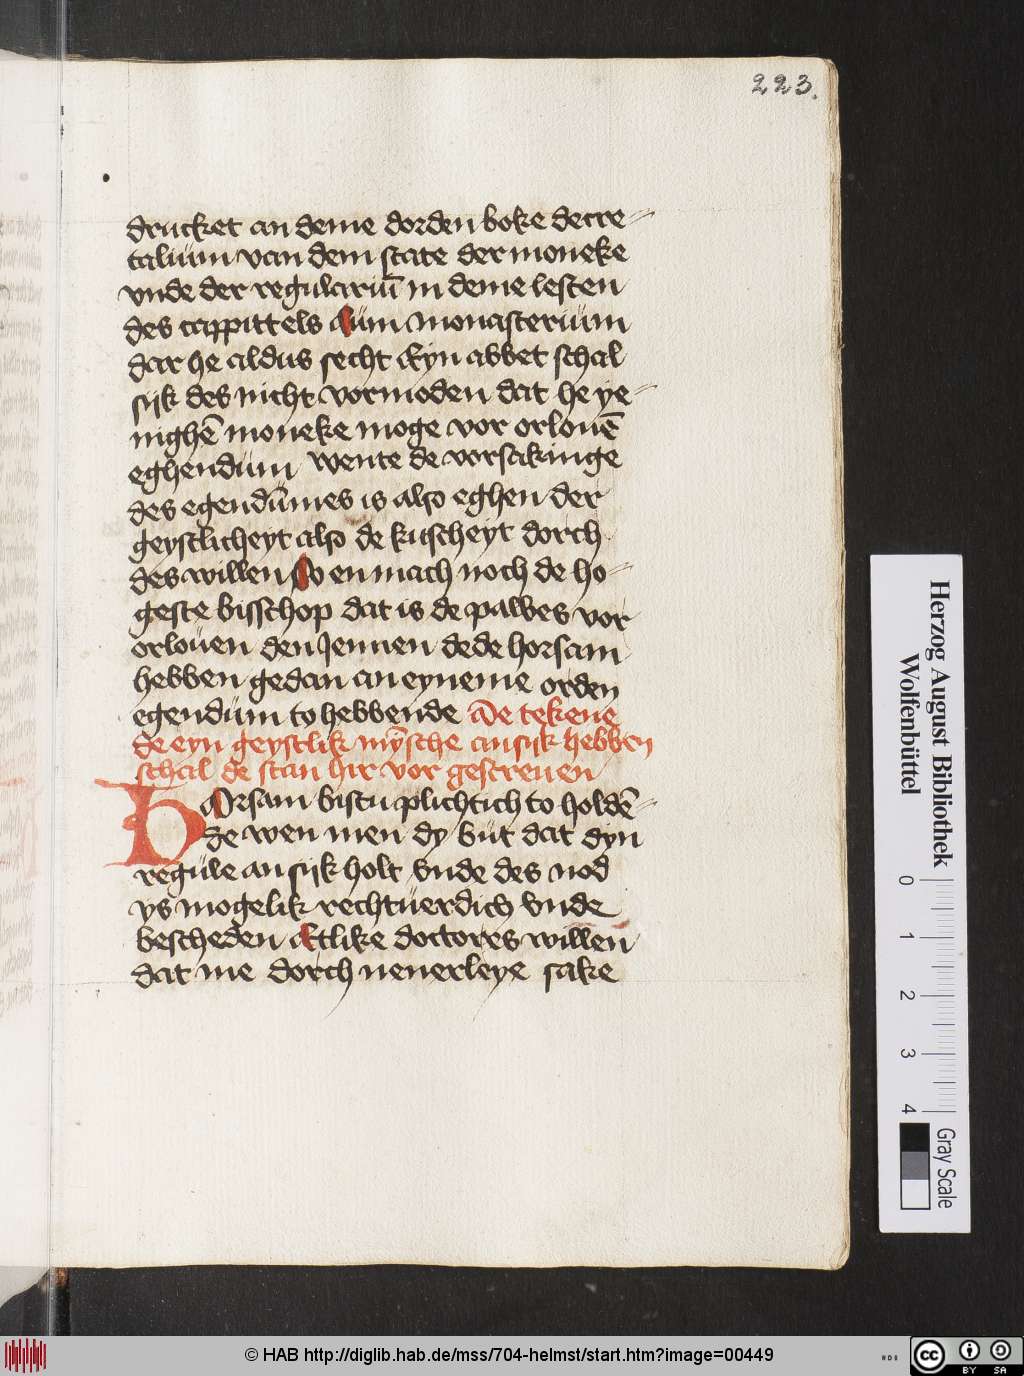 223.
drucket an deme dorden boke decre=
talium van dem state der moneke
vnde der regulariū in deme lesten
des cappittels Cum monasterium
dar he aldus secht Eyn abbet schal
sijk des nicht vormoden dat he ye=
nighē moneke moge vor orlouē
eghendum wente de vorsakinge
des egendūmes is also eghen der
geystlicheyt also de kuscheyt dorch
des willen So en mach noch de ho=
geste bisschop dat is de pawes vor
orlouen den Jennen dede horsam
hebben gedan an eyneme orden
egendum to hebbende De tekene
de eyn geystlik mȳsche an sijk hebben
schal de stan hir vor gescreuen
HOrsam bistu plichtich to holdē=
de wen men dy but dat dyn
regule an sijk holt vnde des nod
ys mogelik rechtuerdich vnde
bescheden Etlike doctores willen
dat me dorch nenerleye sake
Herzog August Bibliothek
Wolfenbüttel
0 1 2 3 4
Gray Scale
© HAB http://diglib.hab.de/mss/704-helmst/start.htm?image=00449
cc BY SA